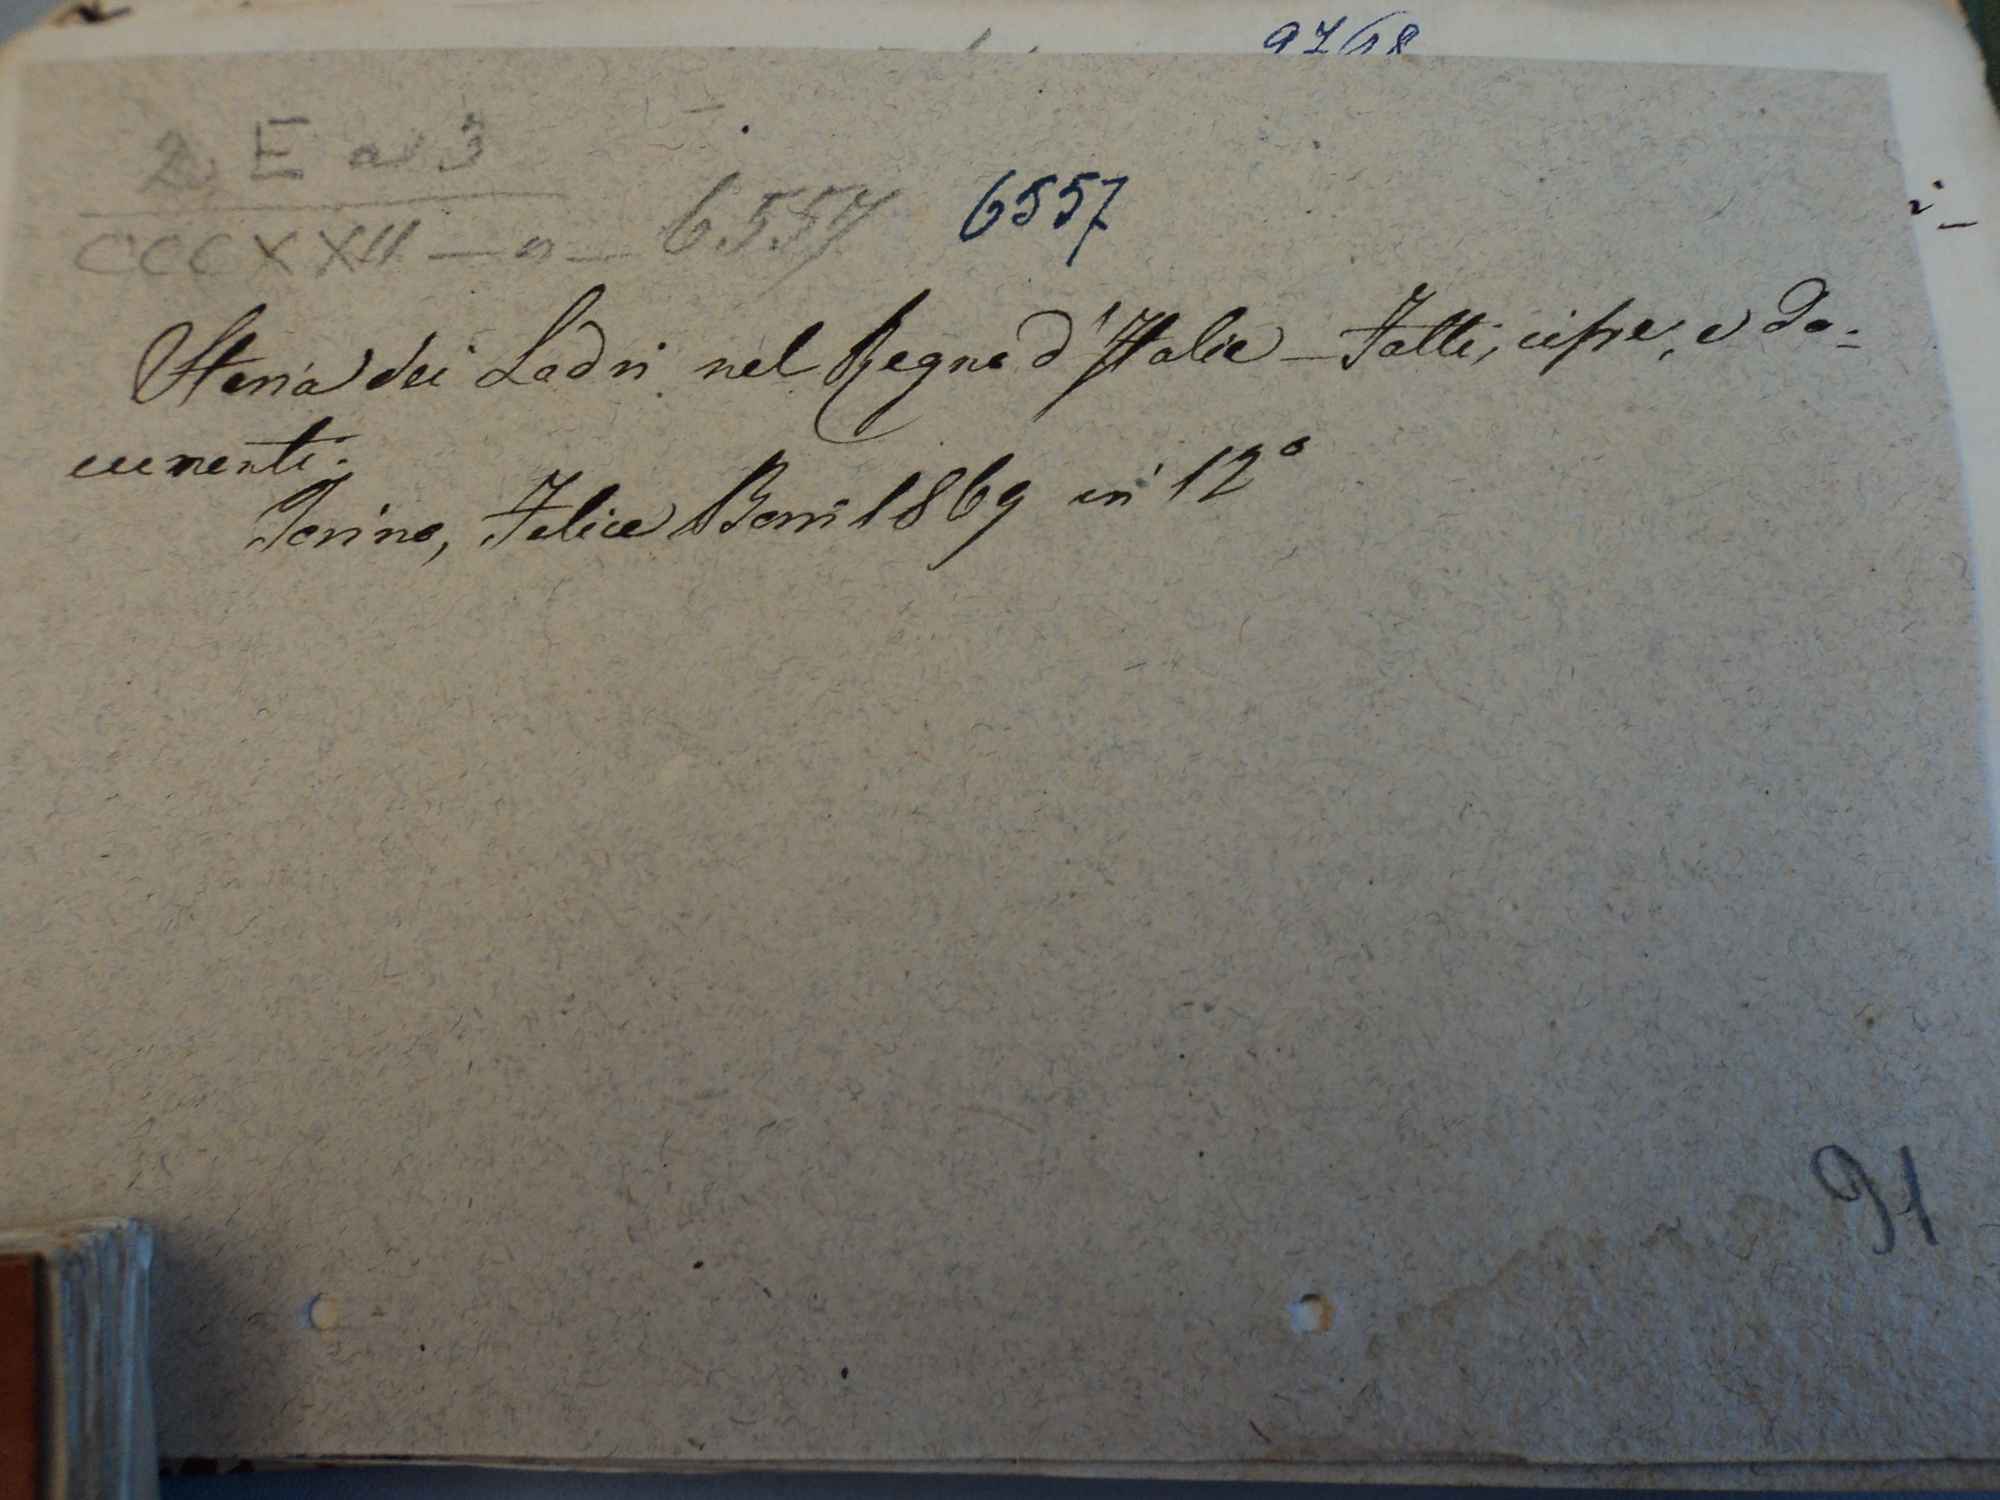 97/18
2 E a 3
CCCXXII — n — 6557 6557
Storia dei Ladri nel Regno d'Italia — Fatti, cifre, e do=
cumenti.
Torino, Felice Borri 1869 in 12°
91